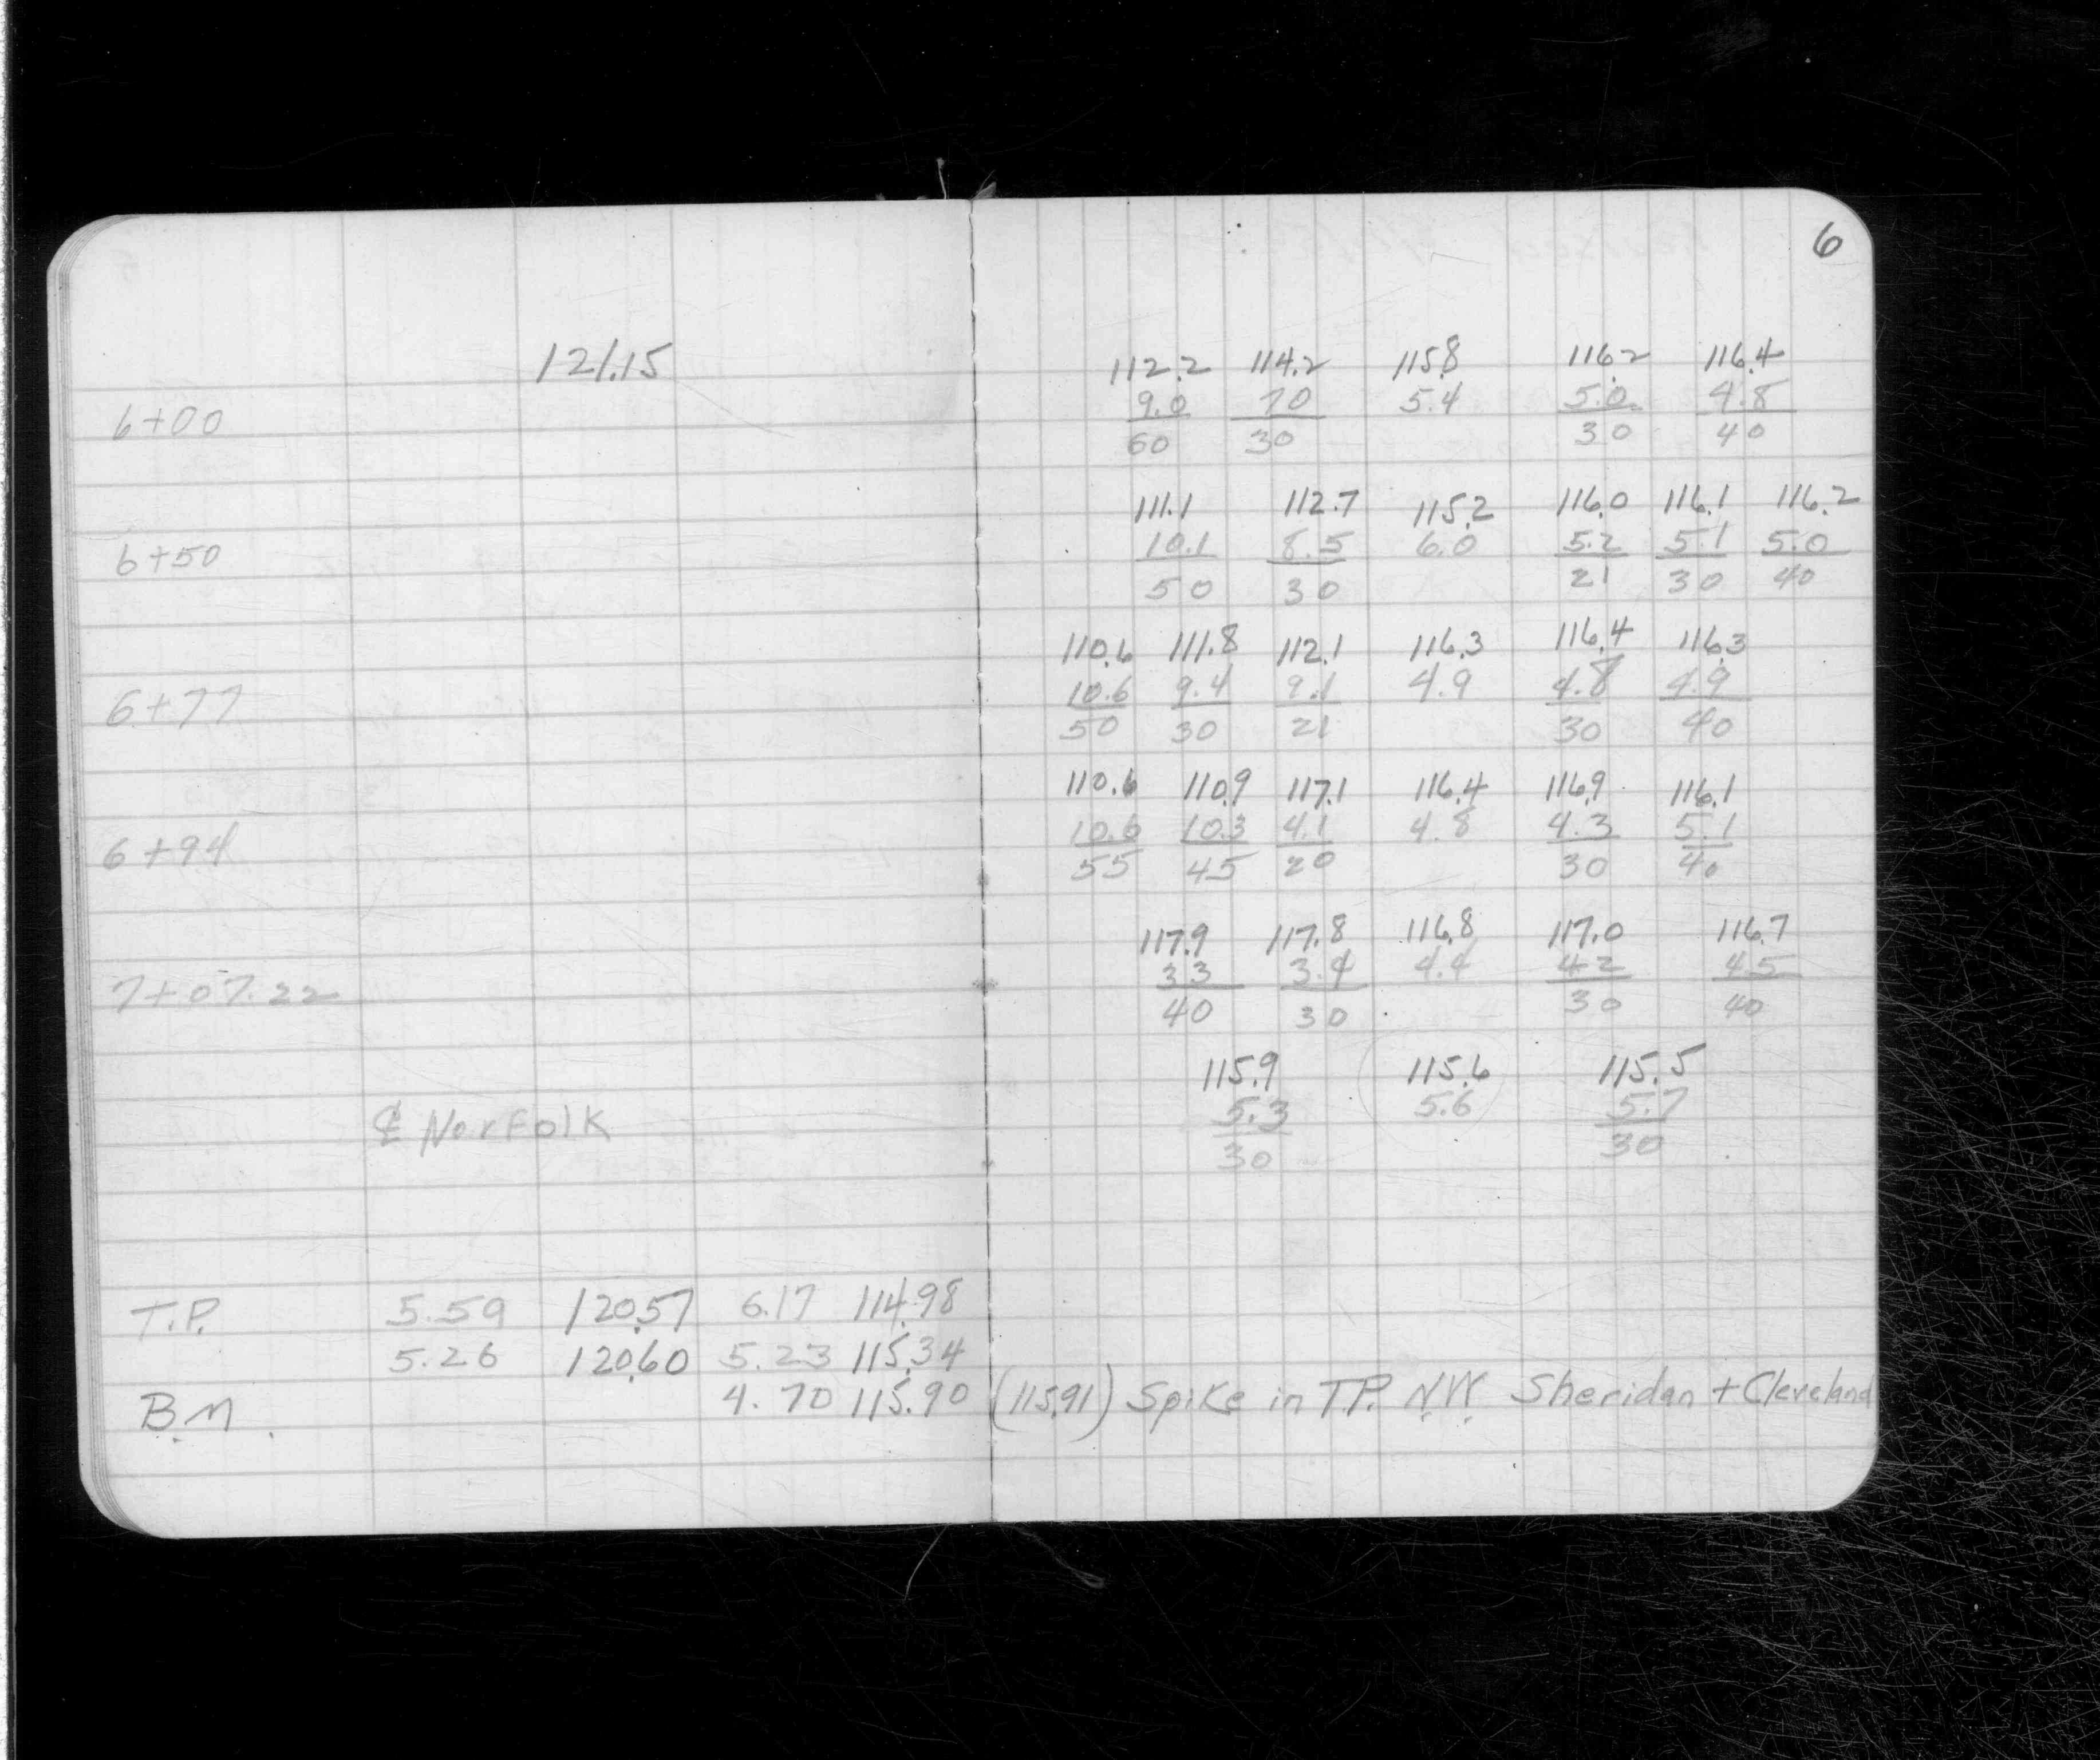 6
121.15
112.2 114.2 115.8 116.2 116.4
6+00 9.0 7.0 5.4 5.0 4.8
60 30 30 40
111.1 112.7 115.2 116.0 116.1 116.2
6+50 10.1 8.5 6.0 5.2 5.1 5.0
50 30 21 30 40
110.6 111.8 112.1 116.3 116.4 116.3
6+77 10.6 9.4 9.1 4.9 4.8 4.9
50 30 21 30 40
110.6 110.9 117.1 116.4 116.9 116.1
6+94 10.6 10.3 4.1 4.8 4.3 5.1
55 45 20 30 40
117.9 117.8 116.8 117.0 116.7
7+07.22 3.3 3.4 4.4 4.2 4.5
40 30 30 40
115.9 115.6 115.5
℄ Norfolk 5.3 5.6 5.7
30 30
T.P. 5.59 120.57 6.17 114.98
5.26 120.60 5.23 115.34
B.M. 4.70 115.90 (115.91) Spike in T.P. N.W. Sheridan + Cleveland